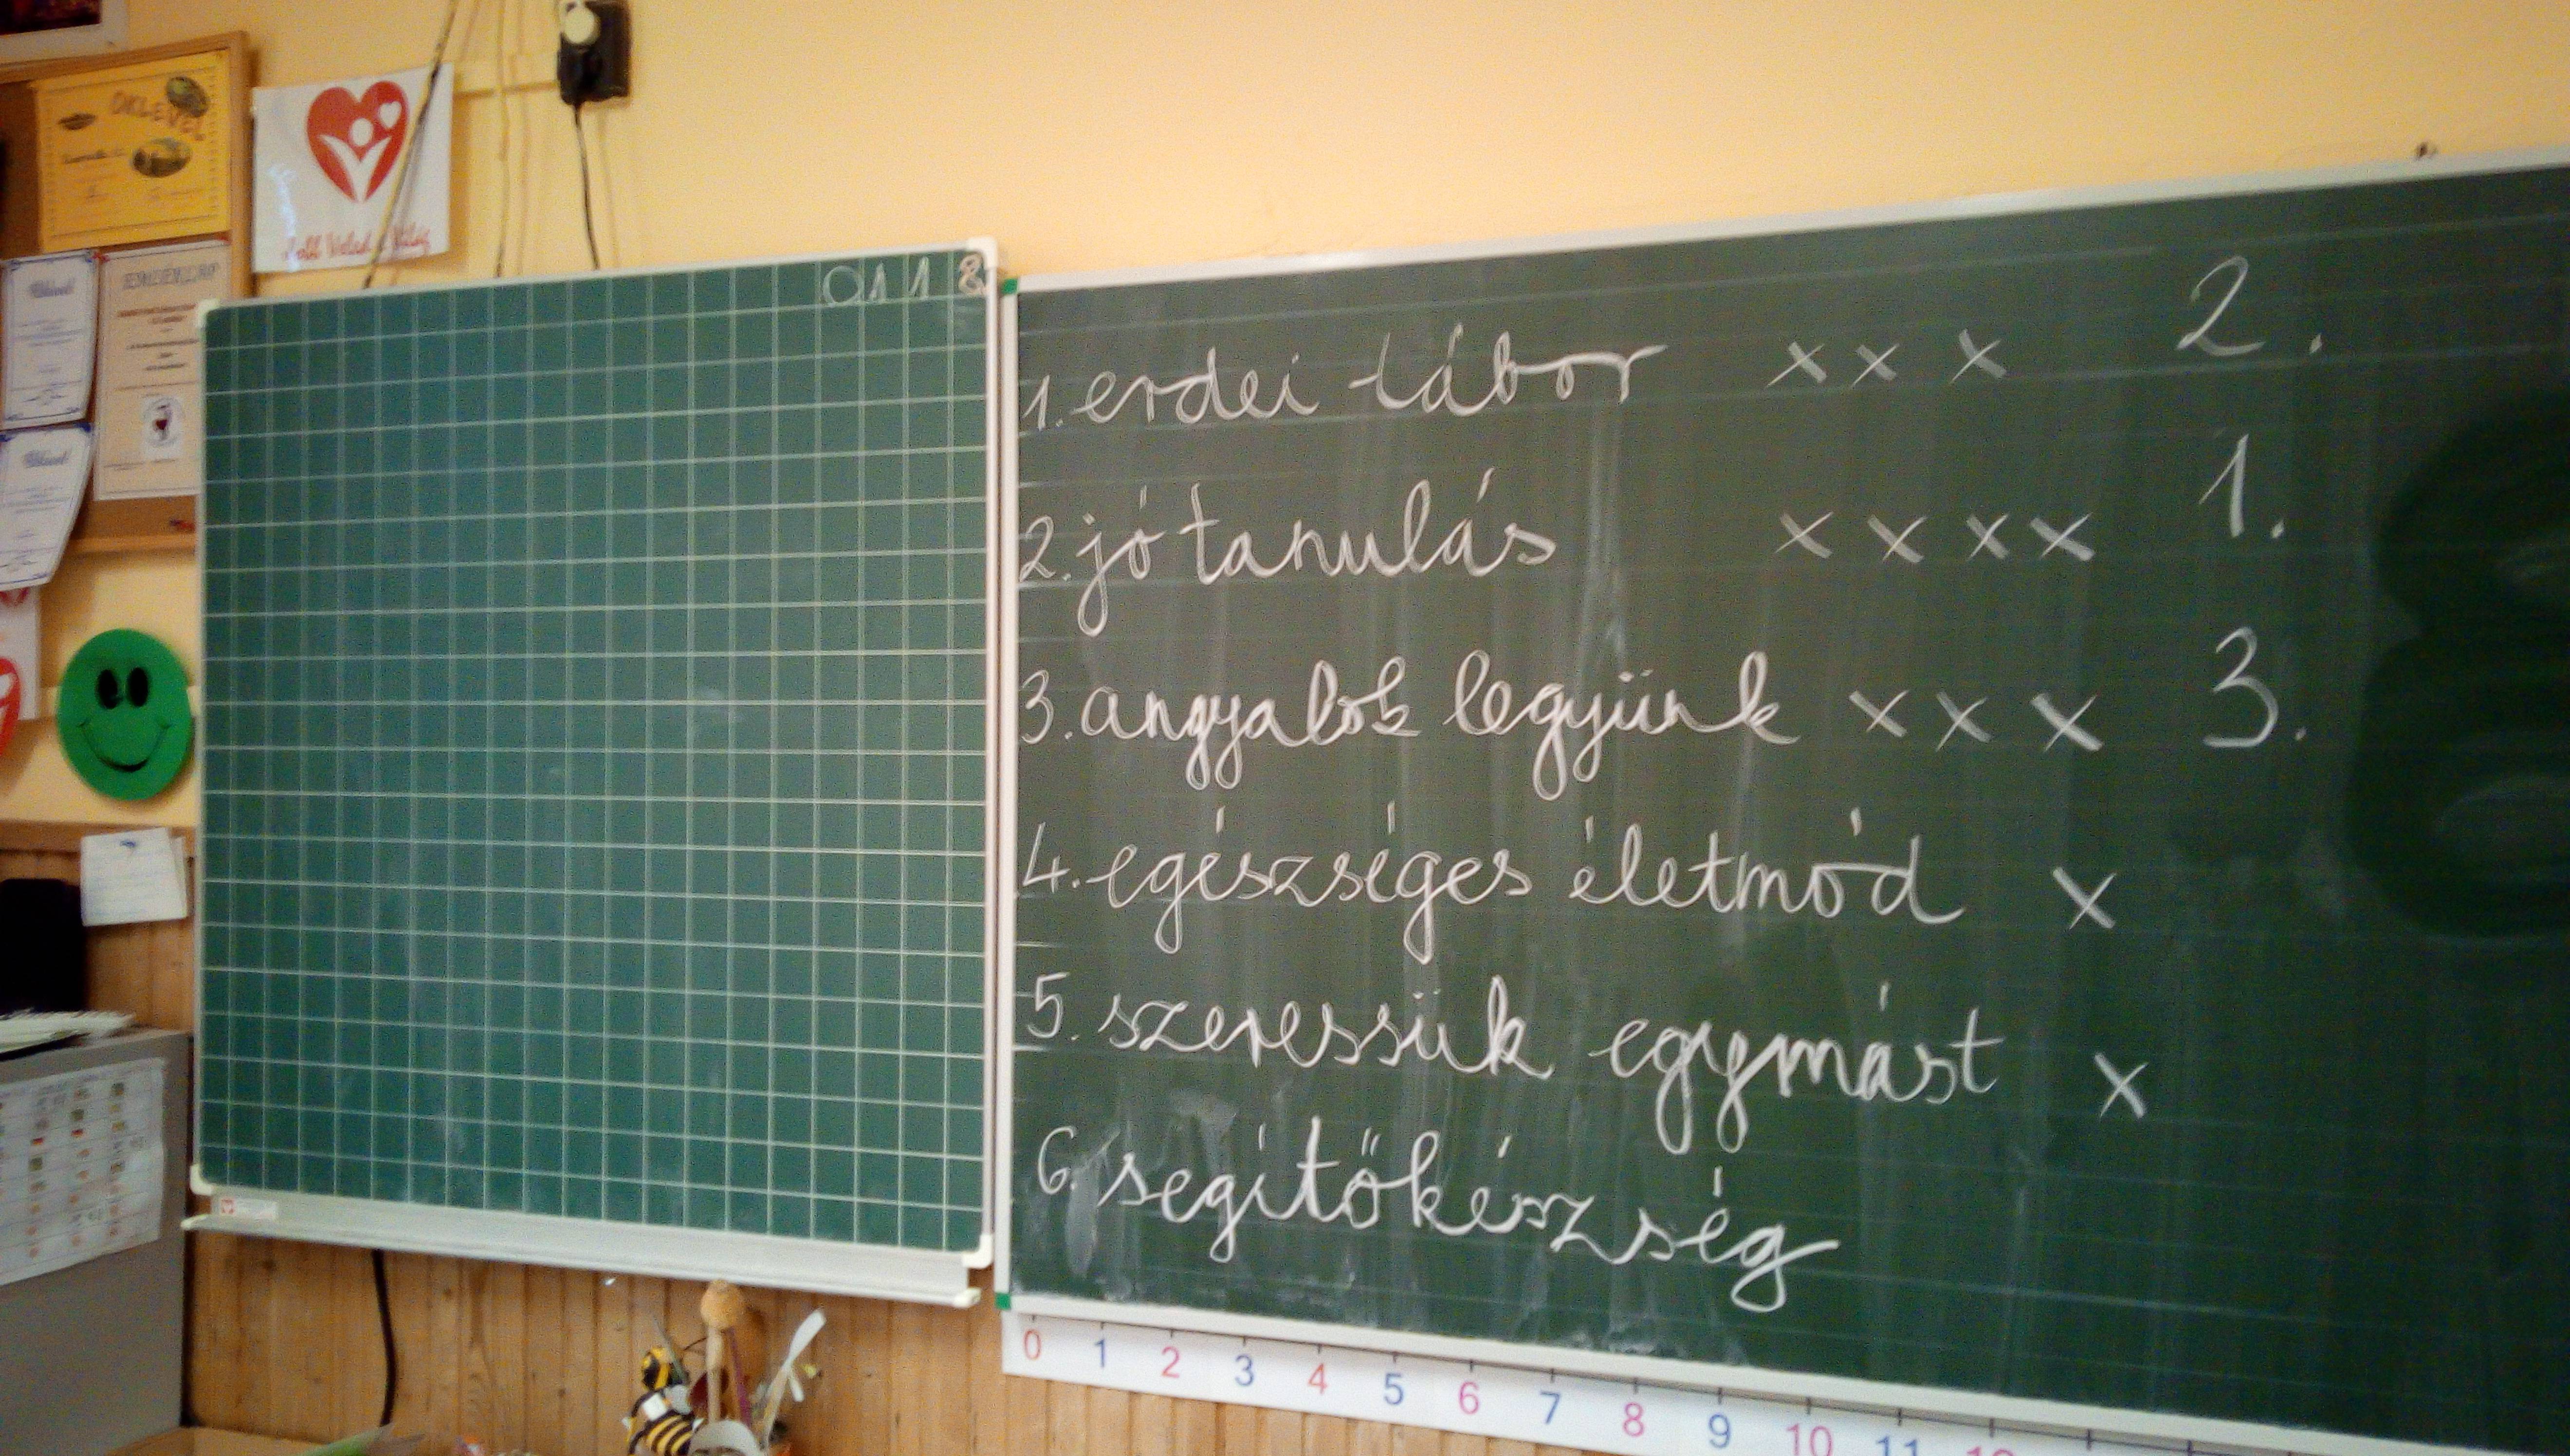 OKLEVÉL
EMLÉKLAP
0118
1. erdei tábor x x x 2.
2. jó tanulás x x x x 1.
3. angyalok legyünk x x x 3.
4. egészséges életmód x
5. szeressük egymást x
6. segítőkészség
0 1 2 3 4 5 6 7 8 9 10 11 12